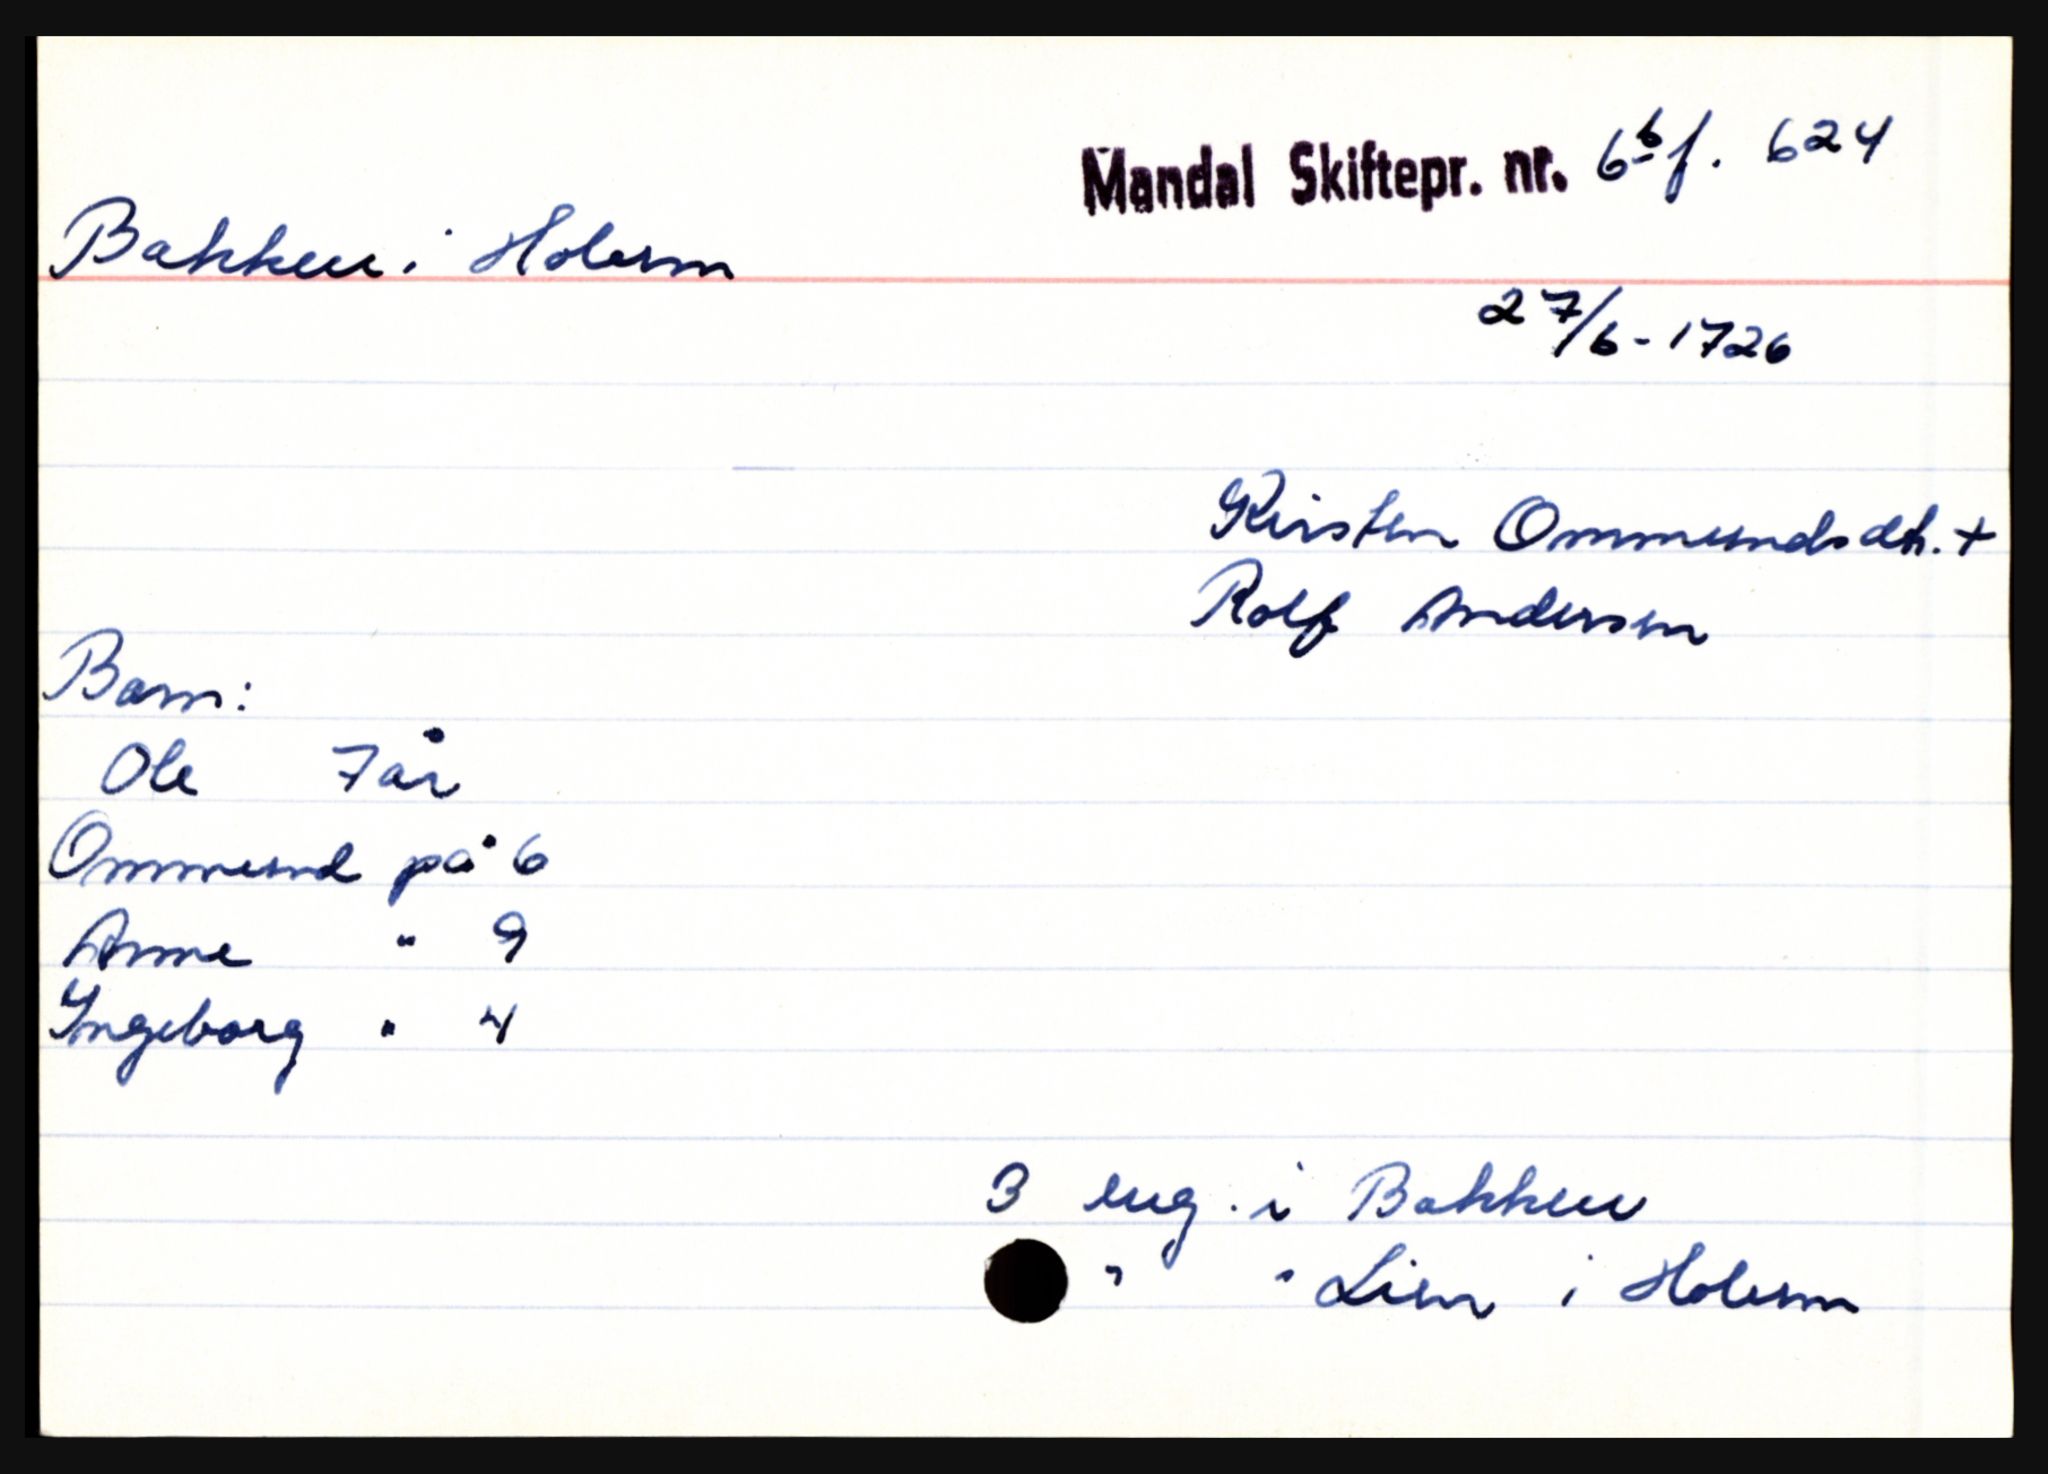 Mandal Skiftepr. nr. 6b f. 624
Bakken i Holum
27/6-1726
Kirsten Ommundsdtr. +
Rolf Andersen
Barn:
Ole 7 år
Ommund på 6
Anne " 9
Ingeborg " 4
3 eng. i Bakken
" " Lien i Holum